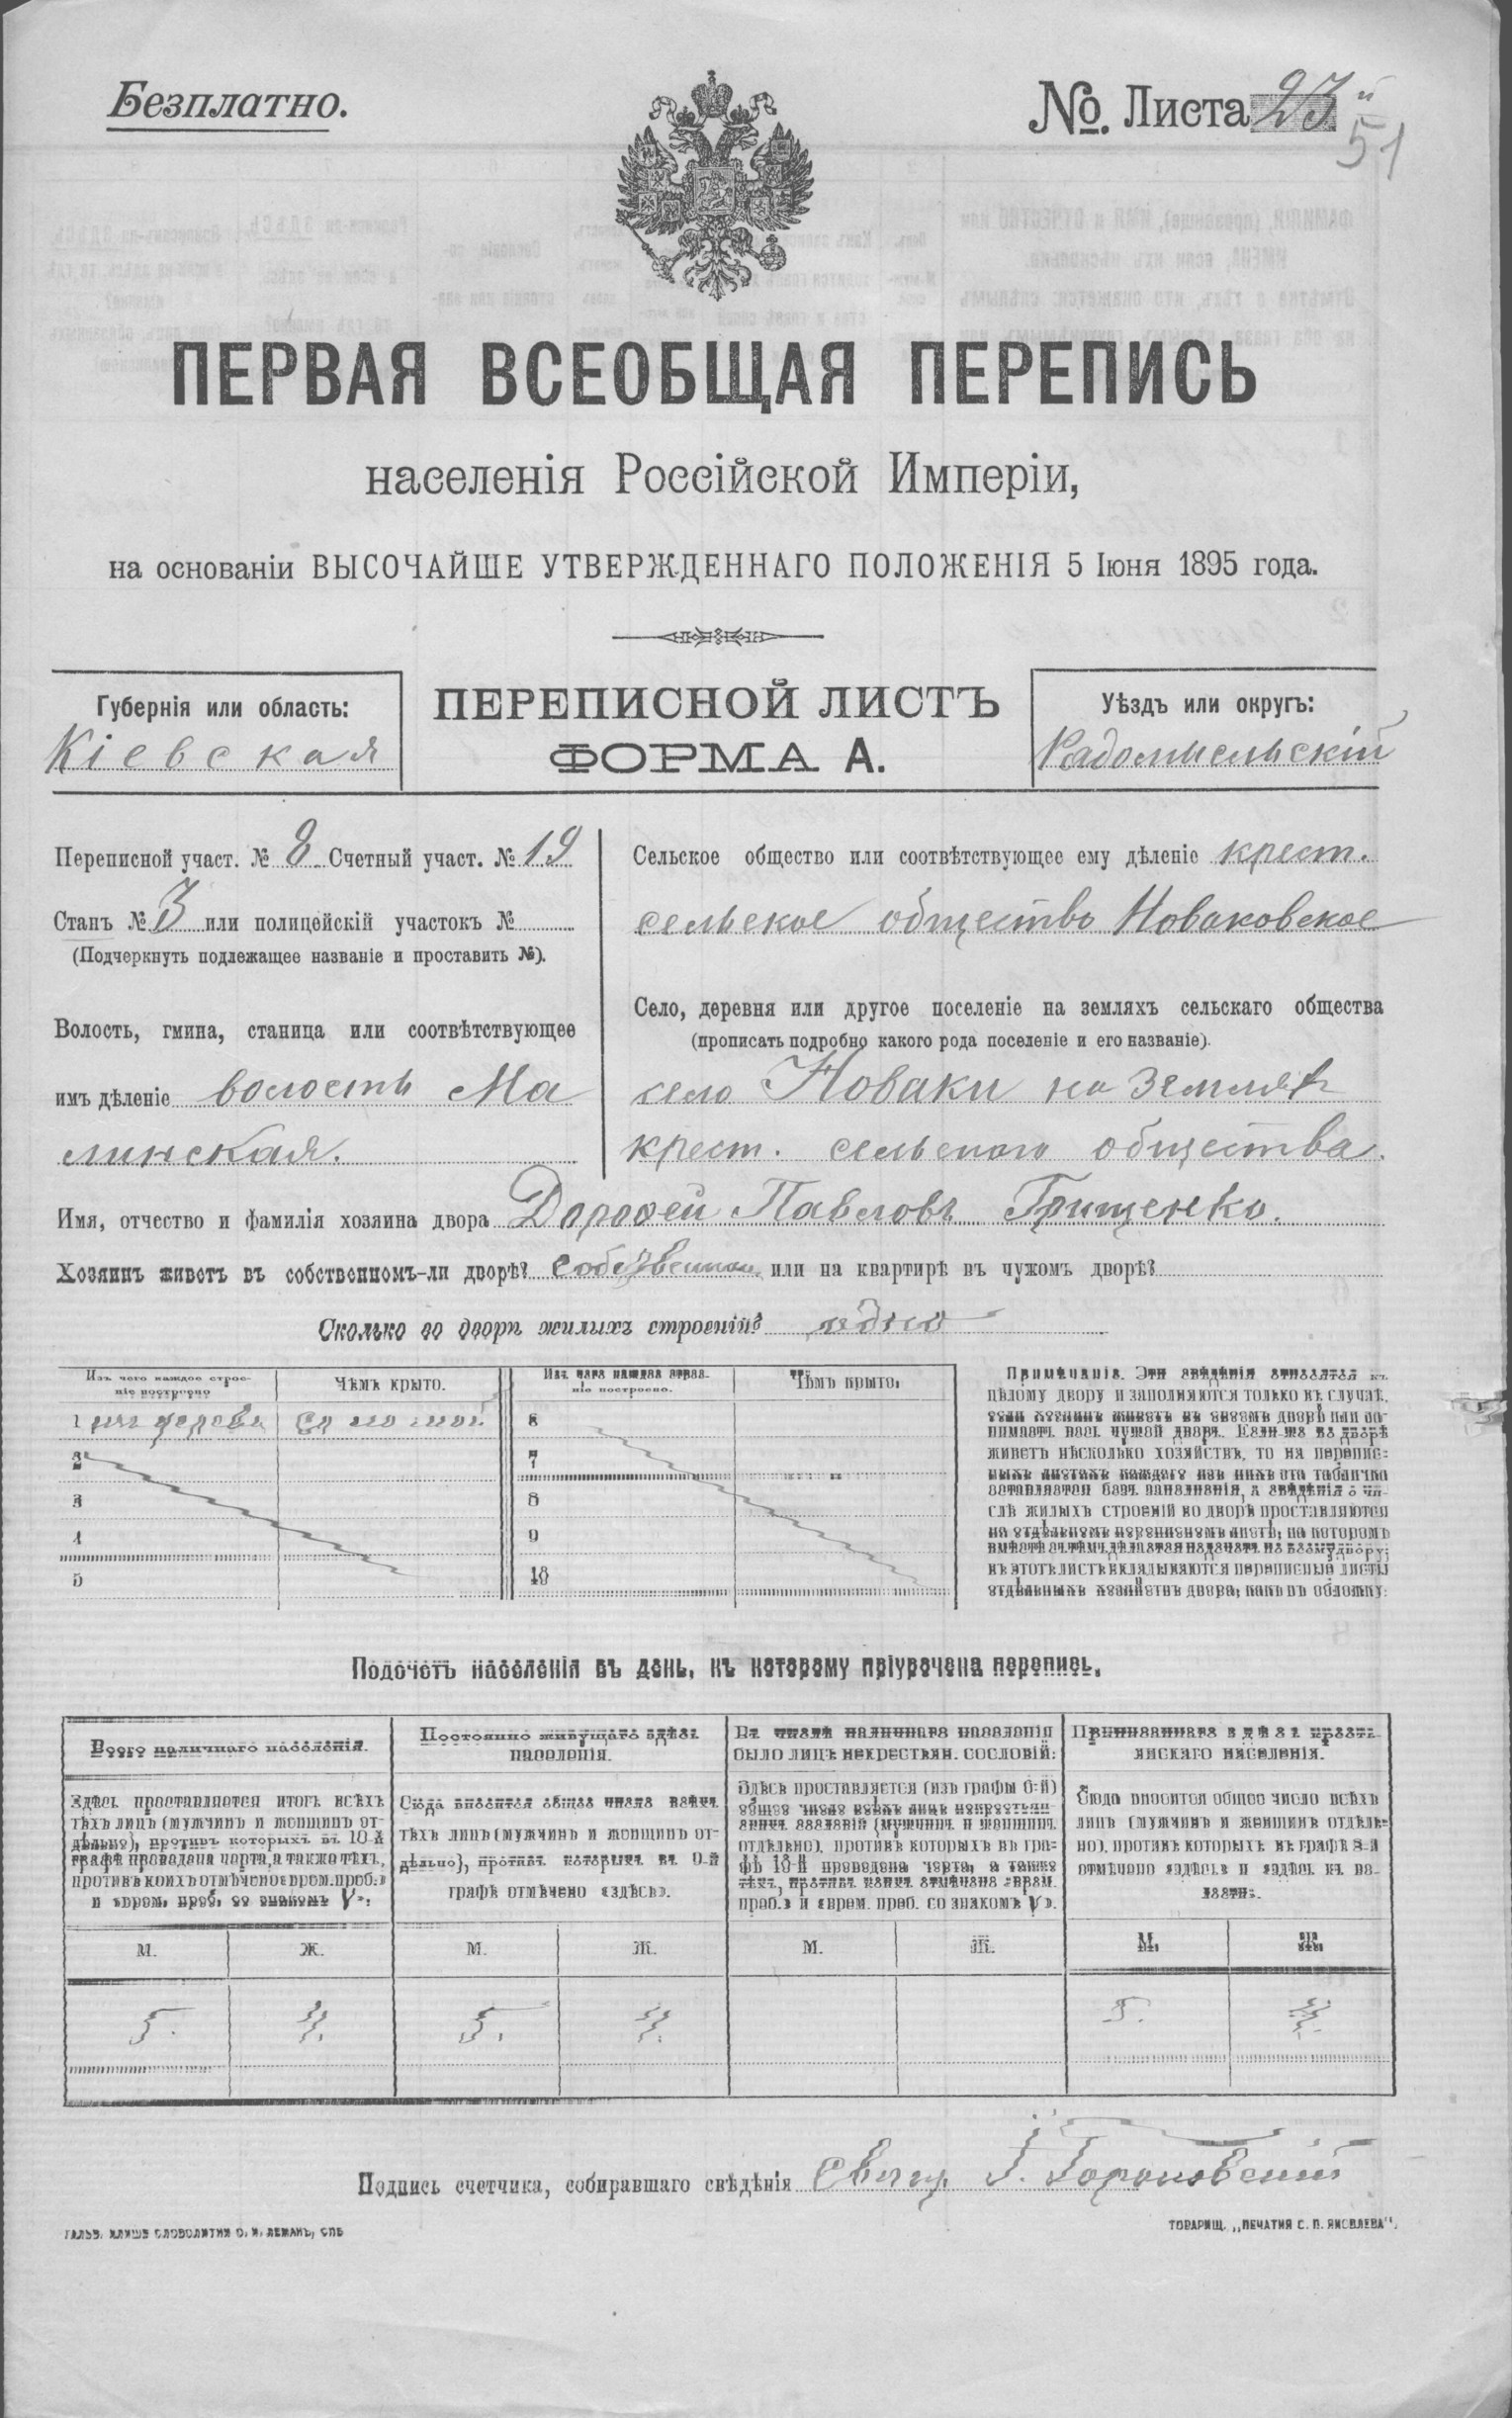 Безплатно.
№. Листа 23й
51
ПЕРВАЯ ВСЕОБЩАЯ ПЕРЕПИСЬ
населенія Россійской Имперіи,
на основаніи ВЫСОЧАЙШЕ УТВЕРЖДЕННАГО ПОЛОЖЕНІЯ 5 Іюня 1895 года.
Губернія или область:
Кіевская
ПЕРЕПИСНОЙ ЛИСТЪ
ФОРМА А.
Уѣздъ или округъ:
Радомысльскій
Переписной участ. № 8 Счетный участ. № 19
Станъ № 3 или полицейскій участокъ №
(Подчеркнуть подлежащее названіе и проставить №).
Волость, гмина, станица или соотвѣтствующее
имъ дѣленіе волость Ма
линская.
Сельское общество или соотвѣтствующее ему дѣленіе крест.
сельское общество Новаковское
Село, деревня или другое поселеніе на земляхъ сельскаго общества
(прописать подробно какого рода поселеніе и его названіе).
село Новаки на земляхъ
крест. сельскаго общества.
Имя, отчество и фамилія хозяина двора Дорофей Павловъ Грищенко.
Хозяинъ живетъ въ собственномъ-ли дворѣ? собственном или на квартирѣ въ чужомъ дворѣ?
Сколько во дворѣ жилыхъ строеній? одно
Изъ чего каждое строе-
ніе построено
Чѣмъ крыто.
Изъ чего каждое строе-
ніе построено.
Чѣмъ крыто.
1 изъ дерева соломой
2
3
4
5
6
7
8
9
10
Примѣчаніе. Эти свѣдѣнія относятся къ
цѣлому двору и заполняются только въ случаѣ,
если хозяинъ живетъ въ своемъ дворѣ или за-
нимаетъ весь чужой дворъ. Если-же во дворѣ
живетъ нѣсколько хозяйствъ, то на перепис-
ныхъ листахъ каждаго изъ нихъ эта табличка
оставляется безъ заполненія, а свѣдѣнія о чи-
слѣ жилыхъ строеній во дворѣ проставляются
на отдѣльномъ переписномъ листѣ, на которомъ
вмѣстѣ съ тѣмъ дѣлается надпись по всему двору;
въ этотъ листъ вкладываются переписные листы
отдѣльныхъ хозяйствъ двора, какъ въ обложку.
Подсчетъ населенія въ день, къ которому пріурочена перепись.
Всего наличнаго населенія.
Здѣсь проставляется итогъ всѣхъ
тѣхъ лицъ (мужчинъ и женщинъ от-
дѣльно), противъ которыхъ въ 10-й
графѣ проведена черта, а также тѣхъ,
противъ коихъ отмѣчено «врем. преб.»
и «врем. преб. со знакомъ V».
Постоянно живущаго здѣсь
населенія.
Сюда вносится общее число всѣхъ
тѣхъ лицъ (мужчинъ и женщинъ от-
дѣльно), противъ которыхъ въ 9-й
графѣ отмѣчено «здѣсь».
Въ числѣ наличнаго населенія
было лицъ некрестьян. сословій:
Здѣсь проставляется (изъ графы 6-й)
общее число всѣхъ лицъ некрестьян-
скихъ сословій (мужчинъ и женщинъ
отдѣльно), противъ которыхъ въ гра-
фѣ 10-й проведена черта, а также
тѣхъ, противъ коихъ отмѣчено «врем.
преб.» и «врем. преб. со знакомъ V».
Приписаннаго здѣсь кресть-
янскаго населенія.
Сюда вносится общее число всѣхъ
лицъ (мужчинъ и женщинъ отдѣль-
но), противъ которыхъ въ графѣ 8-й
отмѣчено «здѣсь» и «здѣсь къ во-
лости».
М. Ж. М. Ж. М. Ж. М. Ж.
5. 4. 5. 4. 5. 4.
Подпись счетчика, собиравшаго свѣдѣнія свящ. І.
ГАЛЬВ. КЛИШЕ СЛОВОЛИТНЯ О. И. ЛЕМАНЪ, СПБ
ТОВАРИЩ. „ПЕЧАТНЯ С. П. ЯКОВЛЕВА“.